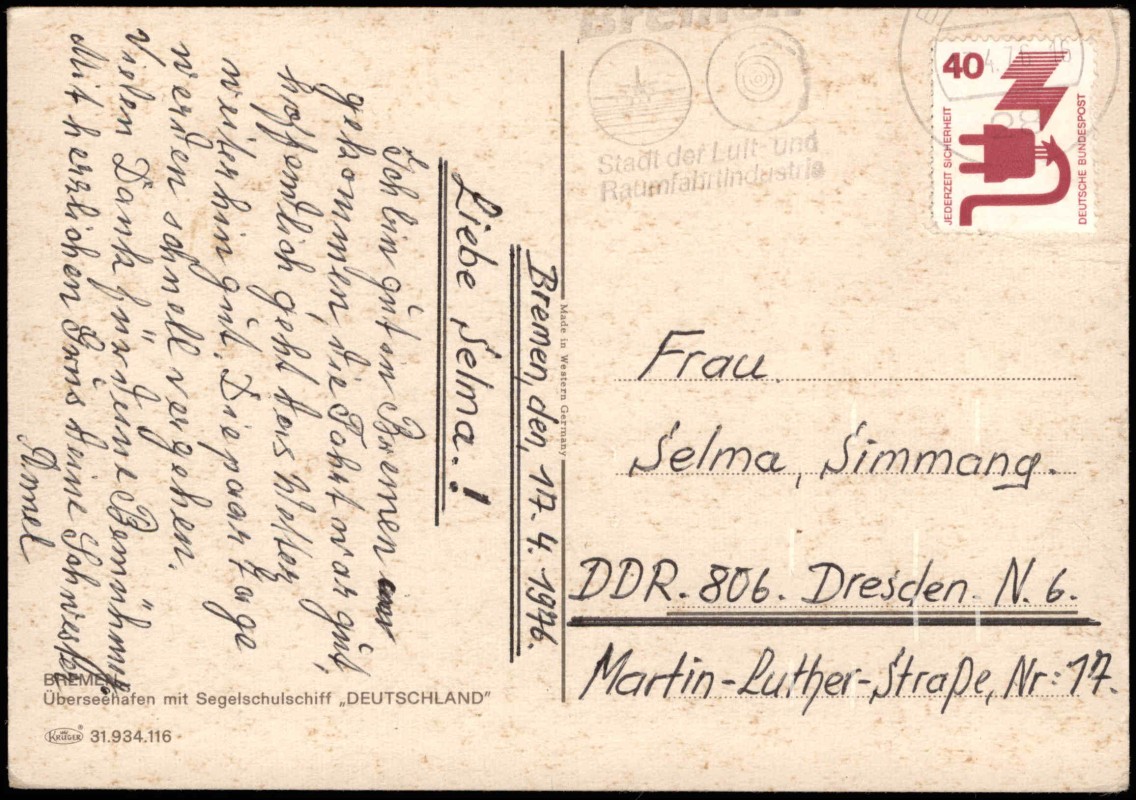 Bremen, den, 17. 4. 1976.
Liebe Selma.!
Ich bin gut in Bremen an
gekommen, die Fahrt war gut,
hoffendlich geht das Wetter
weiterhin gut. Die paar Tage
werden schnell vergehen.
Vielen Dank für deine Bemühung.
Mit herzlichen Gruß deine Schwester
BREMEN
Überseehafen mit Segelschulschiff „DEUTSCHLAND"
KRÜGER 31.934.116
Made in Western Germany
Bremen
Stadt der Luft- und
Raumfahrtindustrie
40
JEDERZEIT SICHERHEIT
DEUTSCHE BUNDESPOST
Frau.
Selma, Simmang.
DDR. 806. Dresden. N. 6.
Martin-Luther-Straße, Nr: 17.